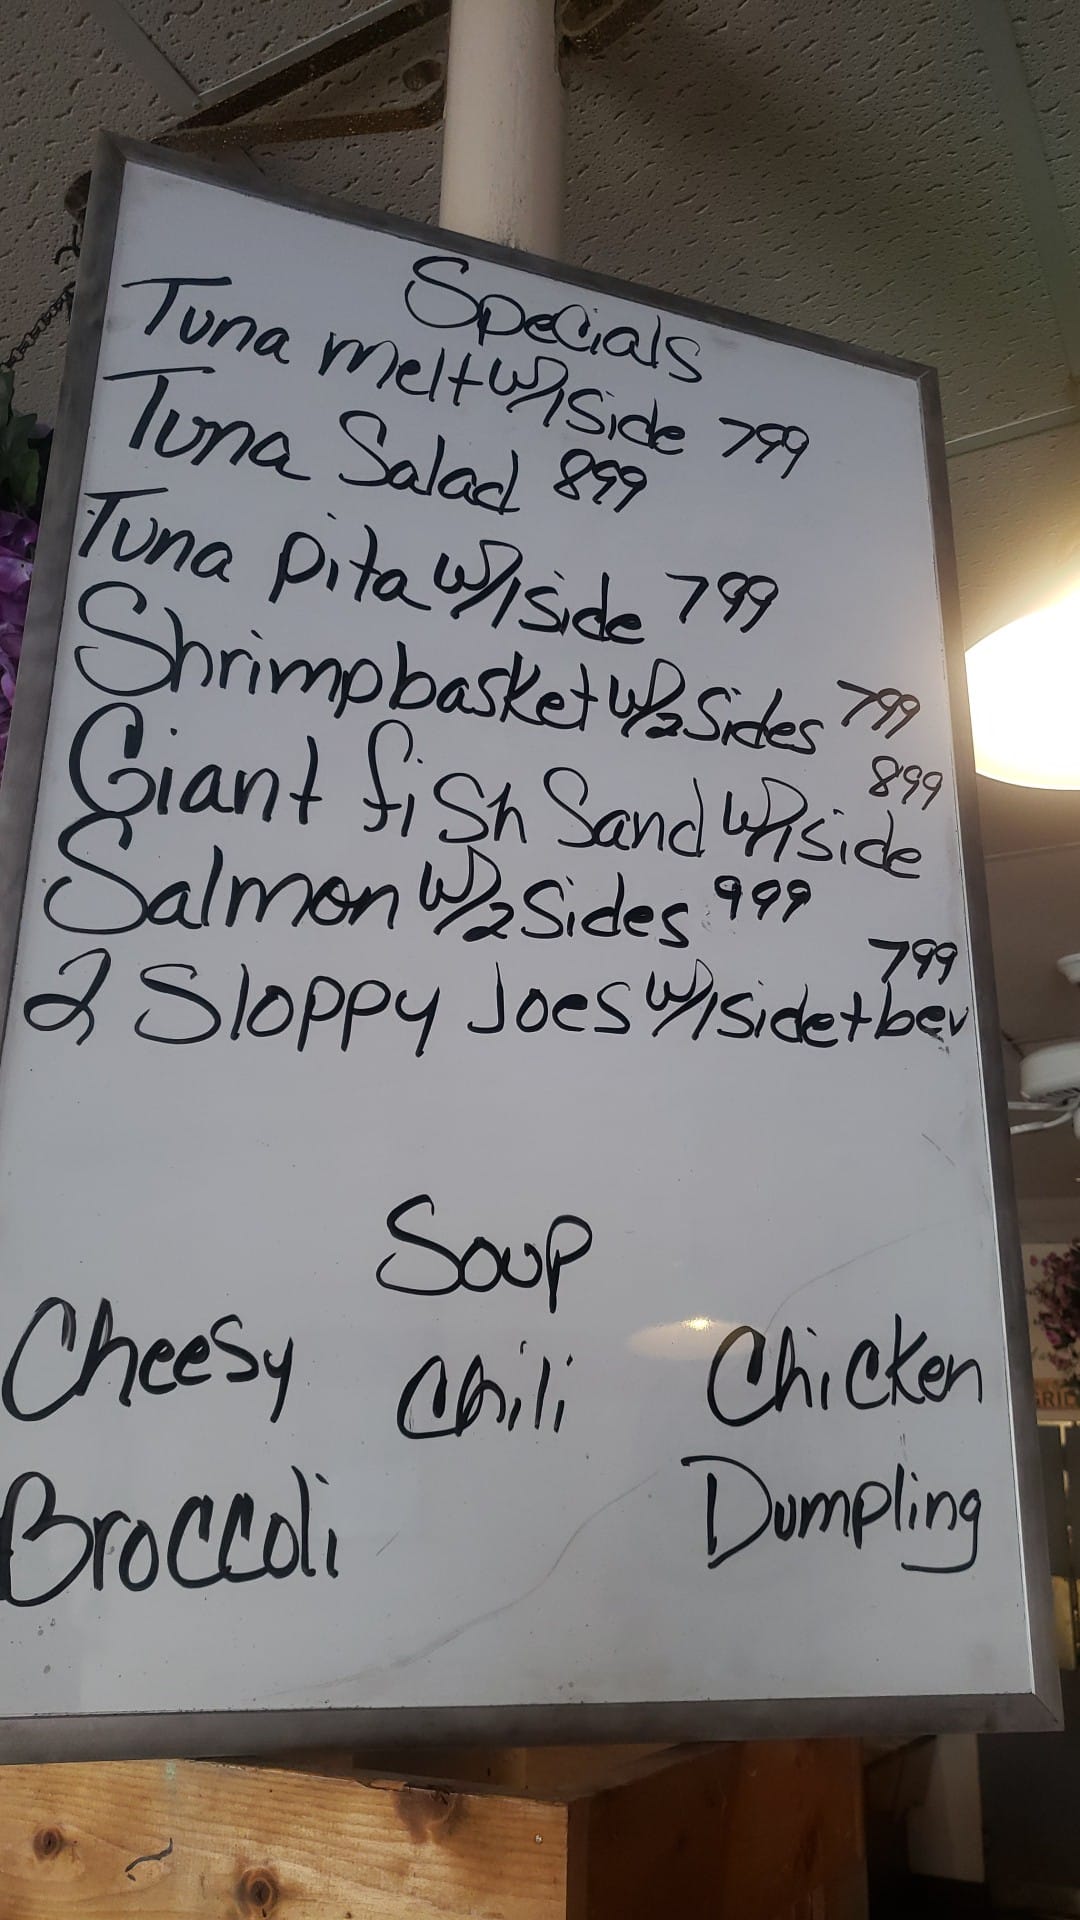 Specials
Tuna melt w/1side 799
Tuna Salad 899
Tuna pita w/1side 799
Shrimp basket w/2 sides 799
Giant fish Sand w/1side 899
Salmon w/2 sides 999
2 Sloppy Joes w/1side+bev 799
Soup
Cheesy Chili Chicken
Broccoli Dumpling